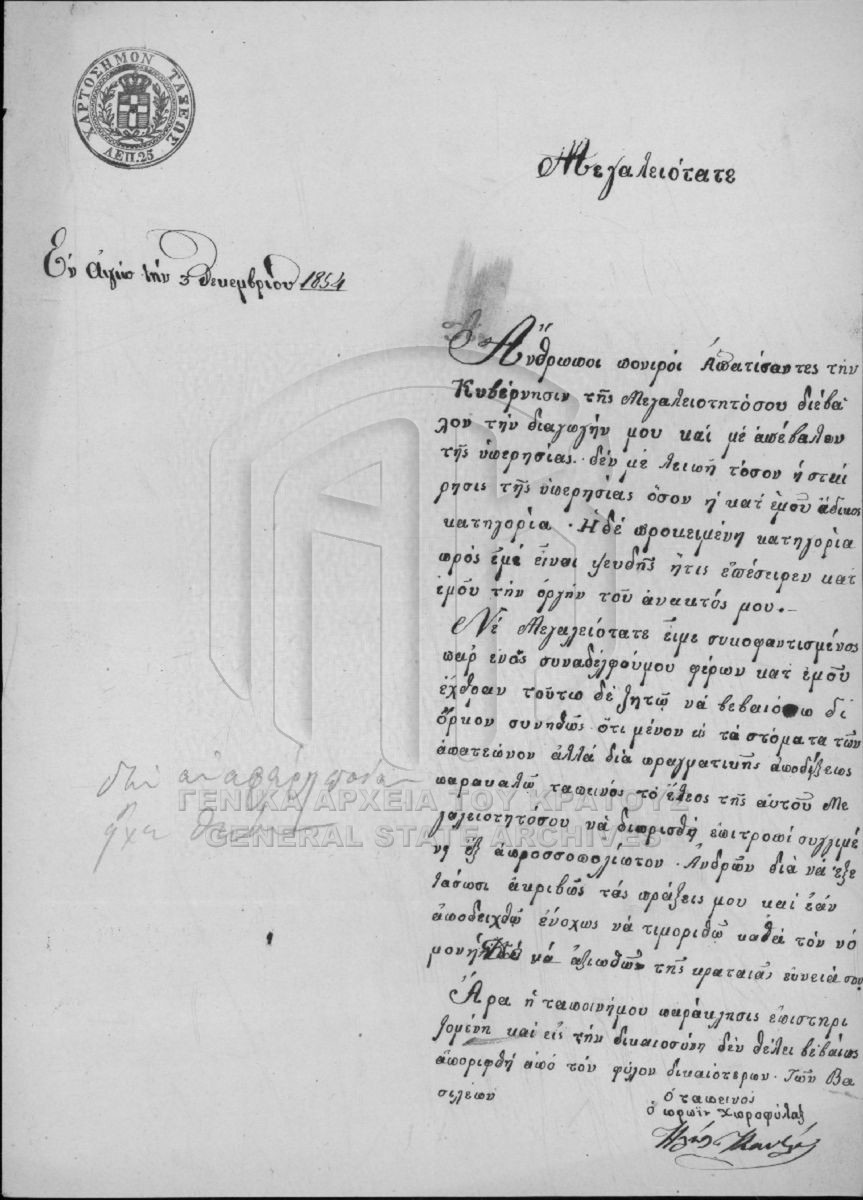 ΧΑΡΤΟΣΗΜΟΝ ΤΑΞΕΩΣ
ΛΕΠ. 25
Μεγαλειότατε
Ἐν Αἰγίῳ τὴν 3 Δεκεμβρίου 1854
Ἄνθρωποι πονιροί Ἀπατίσαντες τὴν
Κυβέρνησιν τῆς Μεγαλειοτητόσου διέβα
λον τὴν διαγωγήν μου καί μέ ἀπέβαλον
τῆς ὑπερησίας. δέν με λειωῆ τόσον ἡ σταί
ρησις τῆς ὑπερησίας ὅσον ἡ κατ ἐμοῦ ἄδικος
κατηγορία. Ἡ δέ προκειμένη κατηγορία
πρός ἐμέ εἶναι ψευδῆς ἥτις ἐπέσειρεν κατ
ἐμοῦ τὴν ὀργήν τοῦ ἀνακτός μου.-
Νέ Μεγαλειότατε εἶμε συκοφαντισμένος
παρ ἑνός συναδελφούμου φέρων κατ ἐμοῦ
ἔχθραν τοῦτω δέ ζητῶ νά βεβαιόσω δι
ὅρκον συνηθῶς ὅτι μένον τά στόματα τῶν
ἀπατεώνον ἀλλά διά πραγματικῆς ἀποδίξεως
παρακαλῶ ταπεινός τό ἔλεος τῆς αὐτοῦ Με
γαλειοτητοσου νά διορισθῆ ἐπιτροπί συγγιμέ
νη ἐξ ἀπροσσοπολίωτον. Ἀνδρῶν διά νά ἐξε
τάσωσι ἀκριβῶς τάς πράξεις μου καί ἐάν
ἀποδειχθῶ ἔνοχως νά τιμοριθῶ καθά τόν νό
μον νά ἀξιωθῶν τῆς κραταιᾶς εὐνειά σου
Ἄρα ἡ ταποινήμου παράκλησις ἐπιστηρι
ζομένη καί εἰς τὴν δικαιοσύνη δέν θέλει βεβαίως
ἀποριφθῆ ἀπό τόν φύλον δικαιότερων. Τῶν Βα
σιλέων
ὁ ταπεινός
ὁ πρωῖν χωροφύλαξ
ΓΕΝΙΚΑ ΑΡΧΕΙΑ ΤΟΥ ΚΡΑΤΟΥΣ
GENERAL STATE ARCHIVES